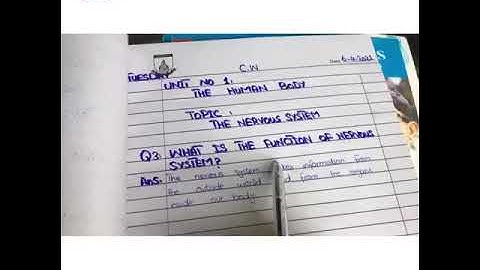 C.W
TUESDAY
UNIT NO 1:
THE HUMAN BODY
TOPIC:
THE NERVOUS SYSTEM
Q3: WHAT IS THE FUNCTION OF NERVOUS
SYSTEM?
Ans: The nervous system information from
the outside world from the
inside our body
S